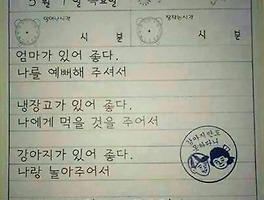 5월 9일 목요일
일어나시각
잠자는시각
시 분
시 분
엄마가 있어 좋다.
나를 예뻐해 주셔서
냉장고가 있어 좋다.
나에게 먹을 것을 주어서
강아지가 있어 좋다.
나랑 놀아주어서
강아지만도
못하다니